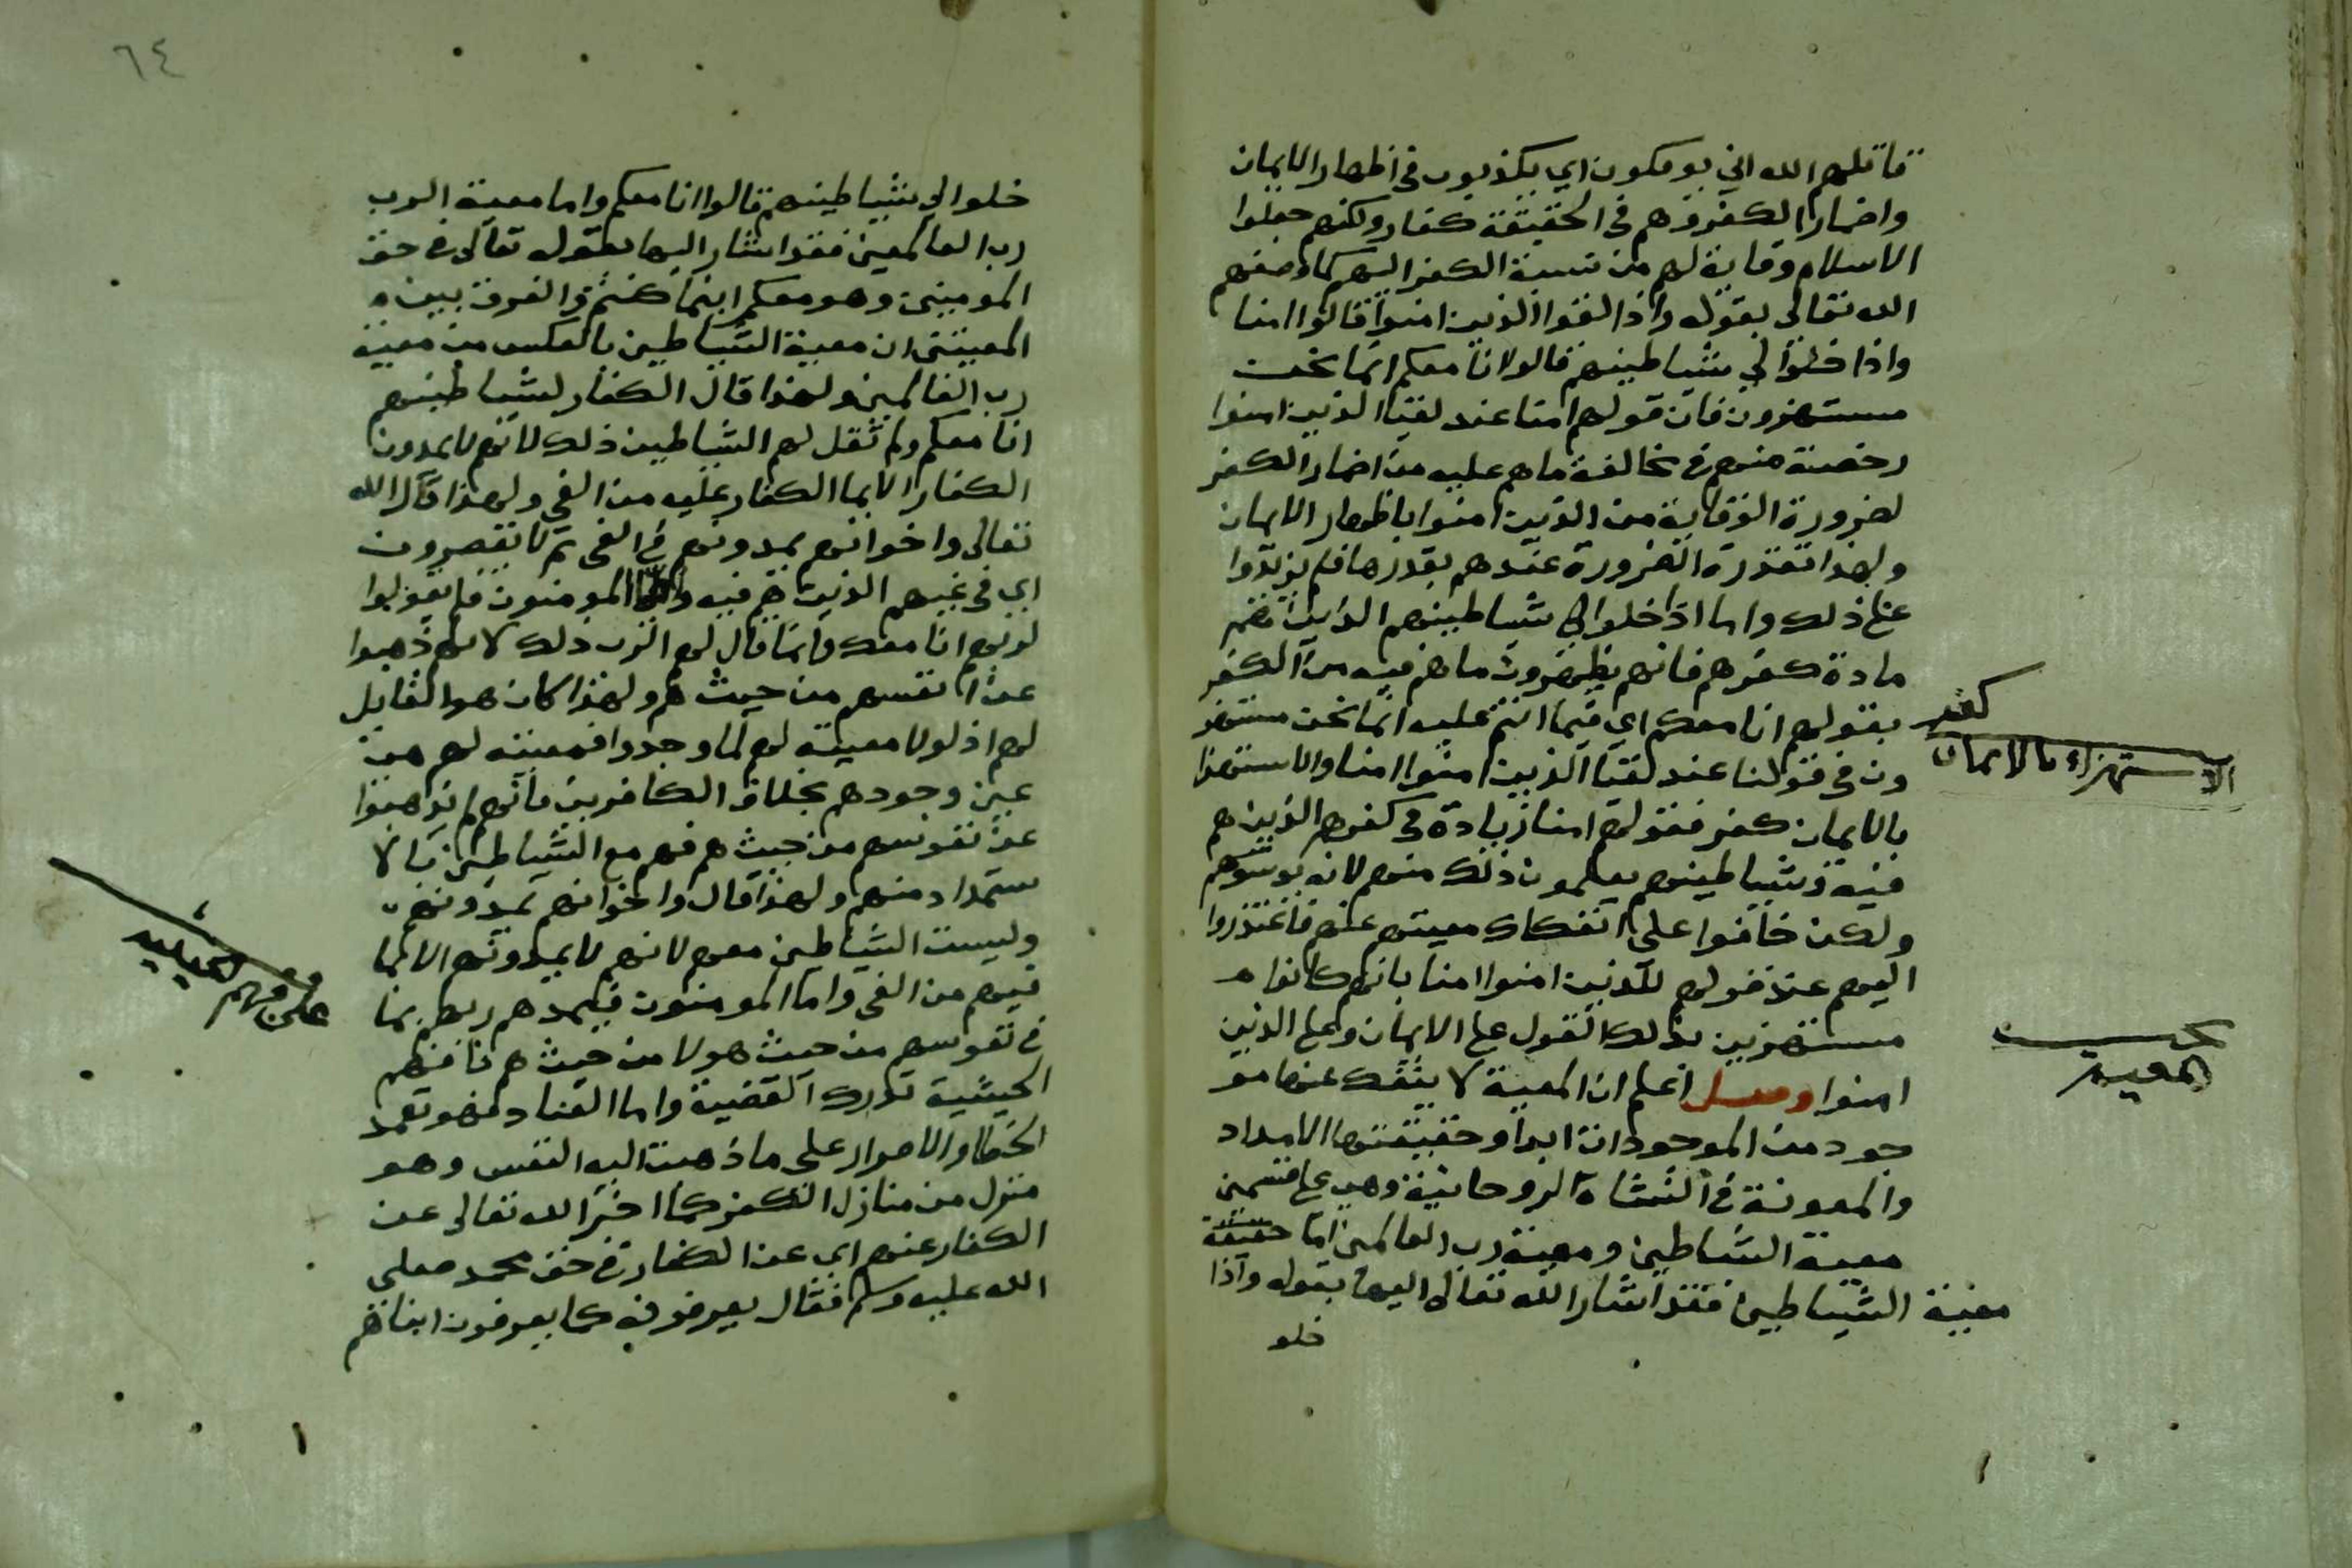 قاتلهم الله انى يوفكون اي يكذبون في اظهار الايمان
واضمار الكفر وهم في الحقيقة كفار ولكنهم جعلوا
الاسلام وقاية لهم من نسبة الكفر اليهم كما وصفهم
الله تعالى بقوله واذا لقوا الذين امنوا قالوا امنا
واذا خلوا الي شياطينهم قالوا انا معكم انما نحن
مستهزون فان قولهم امنا عند لقيا الذين امنوا
رخصة منهم في مخالفة ما هم عليه من اضمار الكفر
لضرورة الوقاية من الذين امنوا باظهار الايمان
ولهذا تقدرة الضرورة عندهم بقدرها فلم يزيدوا
على ذلك واما اذا خلوا الى شياطينهم الذين
مادة كفرهم فانهم يظهرون ما هم فيه من الكفر
بقولهم انا معكم اي فيما انتم عليه انما نحن مستهز
ون في قولنا عند لقيا الذين امنوا امنا والاستهزا
بالايمان كفر فقولهم امنا زيادة في كفرهم الذين هم
فيه وشياطينهم يعلمون ذلك منهم لانه
ولكن خافوا على انفكاك معيتهم عنهم فاعتذروا
اليهم عند قولهم للذين امنوا امنا بانهم كانوا
مستهزين بذلك القول على الايمان وعلى الذين
امنوا وصل اعلم ان المعية لا ينفك عنها مو
جود من الموجودات ابدا وحقيقتها الامداد
والمعونة في النشاة الروحانية وهي على قسمين
معية الشياطين ومعية رب العالمين اما حقيقة
معية الشياطين فقد اشار الله تعالى اليها بقوله واذا
خلو
كفر
الاستهزاء بالايمان
المعية
٦٤
خلوا الي شياطينهم قالوا انا معكم واما معية الرب
رب العالمين فقد اشار اليها بقوله تعالى في حق
المومنين وهو معكم اينما كنتم والفرق بين
المعيتين ان معية الشياطين بالعكس من معية
رب العالمين ولهذا قال الكفار لشياطينهم
انا معكم ولم تقل لهم الشياطين ذلك لانهم لا يمدون
الكفار الا بما الكفار عليه من الغي ولهذا قال الله
تعالى واخوانهم يمدونهم في الغي ثم لا يقصرون
اي في غيهم الذين هم فيه واما المومنون فلم يقولوا
لربهم انا معك وانما قال لهم الرب ذلك لانهم ذهبوا
عن انفسهم من حيث هم ولهذا كان هو القايل
لهم اذ لولا معيته لهم لما وجدوا فمعيته لهم من
عين وجودهم بخلاف الكافرين فانهم لم يذهبوا
عن نفوسهم من حيث هم فهم مع الشياطين بالا
ستمداد منهم ولهذا قال واخوانهم يمدونهم
وليست الشياطين معهم لانهم لا يمدونهم الا بما
فيهم من الغي واما المومنون فيمدهم ربهم بما
في نفوسهم من حيث هو لا من حيث هم فافهم
الحيثية تدرك القضية واما العناد فهو تعمد
الخطا والاصرار على ما ذهبت اليه النفس وهو
منزل من منازل الكفر كما اخبر الله تعالى عن
الكفار عنهم اي عن الكفار في حق محمد صلى
الله عليه وسلم فقال يعرفونه كما يعرفون ابناهم